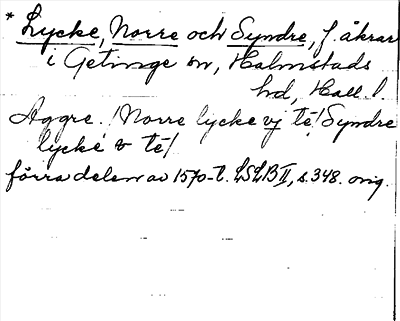 * Lycke, Norre och Syndre, f. åkrar
i Getinge sn, Halmstads
hd, Hall. l.
Aggre. /Norre lycke vj té/ Syndre
lycke v té/
förra delen av 1570-t. LSLB II, s. 348. orig.